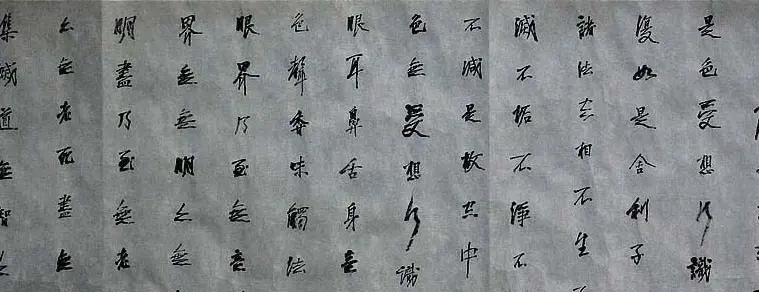 是色受想行識
復如是舍利子
諸法空相不生
滅不垢不淨不
不減是故空中
色無受想行識
眼耳鼻舌身意
色聲香味觸法
眼界乃至無意
界無無明亦無
明盡乃至無老
亦無老死盡無
集滅道無智亦